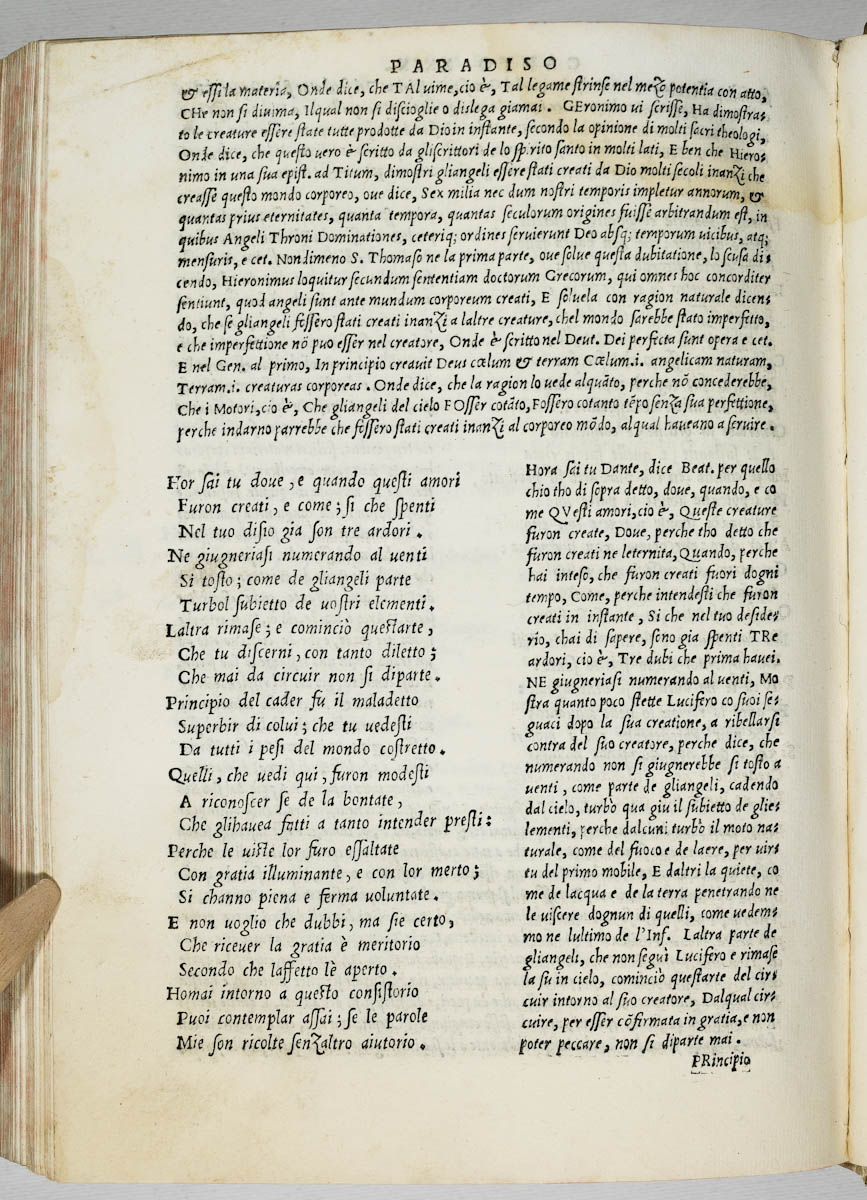 PARADISO
& essi la materia, Onde dice, che TAl uime, cio è, Tal legame strinse nel mezo potentia con atto,
CHe non si diuima, Ilqual non si discioglie o dislega giamai. GEronimo ui scrisse, Ha dimostra-
to le creature essere state tutte prodotte da Dio in instante, secondo la opinione di molti sacri theologi,
Onde dice, che questo uero è scritto da gliscrittori de lo spirito santo in molti lati, E ben che Hiero-
nimo in una sua epist. ad Titum, dimostri gliangeli essere stati creati da Dio molti secoli inanzi che
creasse questo mondo corporeo, oue dice, Sex milia nec dum nostri temporis impletur annorum, &
quantas prius eternitates, quanta tempora, quantas seculorum origines fuisse arbitrandum est, in
quibus Angeli Throni Dominationes, ceteriq; ordines seruierunt Deo absq; temporum uicibus, atq;
mensuris, e cet. Nondimeno S. Thomaso ne la prima parte, oue solue questa dubitatione, lo scusa di-
cendo, Hieronimus loquitur secundum sententiam doctorum Grecorum, qui omnes hoc concorditer
sentiunt, quod angeli sunt ante mundum corporeum creati, E soluela con ragion naturale dicen-
do, che se gliangeli fossero stati creati inanzi a laltre creature, chel mondo sarebbe stato imperfetto,
e che imperfettione nō puo esser nel creatore, Onde è scritto nel Deut. Dei perfecta sunt opera e cet.
E nel Gen. al primo, In principio creauit Deus cœlum & terram Cœlum.i. angelicam naturam,
Terram.i. creaturas corporeas. Onde dice, che la ragion lo uede alquāto, perche nō concederebbe,
Che i Motori, cio è, Che gliangeli del cielo FOsser cotāto, Fossero cotanto tēpo senza sua perfettione,
perche indarno parrebbe che fossero stati creati inanzi al corporeo mōdo, alqual haueano a seruire.
Hor sai tu doue, e quando questi amori
Furon creati, e come; si che spenti
Nel tuo disio gia son tre ardori.
Ne giugneriasi numerando al uenti
Si tosto; come de gliangeli parte
Turbol subietto de uostri elementi.
Laltra rimase; e cominciò questarte,
Che tu discerni, con tanto diletto;
Che mai da circuir non si diparte.
Principio del cader fu il maladetto
Superbir di colui; che tu uedesti
Da tutti i pesi del mondo costretto.
Quelli, che uedi qui, furon modesti
A riconoscer se de la bontate,
Che glihauea fatti a tanto intender presti:
Perche le uiste lor furo essaltate
Con gratia illuminante, e con lor merto;
Si channo piena e ferma uoluntate.
E non uoglio che dubbi, ma sie certo,
Che riceuer la gratia è meritorio
Secondo che laffetto lè aperto.
Homai intorno a questo consistorio
Puoi contemplar assai; se le parole
Mie son ricolte senzaltro aiutorio.
Hora sai tu Dante, dice Beat. per quello
chio tho di sopra detto, doue, quando, e co
me QVesti amori, cio è, Queste creature
furon create, Doue, perche tho detto che
furon creati ne leternita, Quando, perche
hai inteso, che furon creati fuori dogni
tempo, Come, perche intendesti che furon
creati in instante, Si che nel tuo deside-
rio, chai di sapere, sono gia spenti TRe
ardori, cio è, Tre dubi che prima hauei.
NE giugneriasi numerando al uenti, Mo
stra quanto poco stette Lucifero co suoi se-
guaci dopo la sua creatione, a ribellarsi
contra del suo creatore, perche dice, che
numerando non si giugnerebbe si tosto a
uenti, come parte de gliangeli, cadendo
dal cielo, turbò qua giu il subietto de glie-
lementi, perche dalcuni turbò il moto na-
turale, come del fuoco e de laere, per uir-
tu del primo mobile, E daltri la quiete, co
me de lacqua e de la terra penetrando ne
le uiscere dognun di quelli, come uedem-
mo ne lultimo de l'Inf. Laltra parte de
gliangeli, che non seguì Lucifero e rimase
la su in cielo, cominciò questarte del cir-
cuir intorno al suo creatore, Dalqual cir-
cuire, per esser cōfirmata in gratia, e non
poter peccare, non si diparte mai.
PRincipio